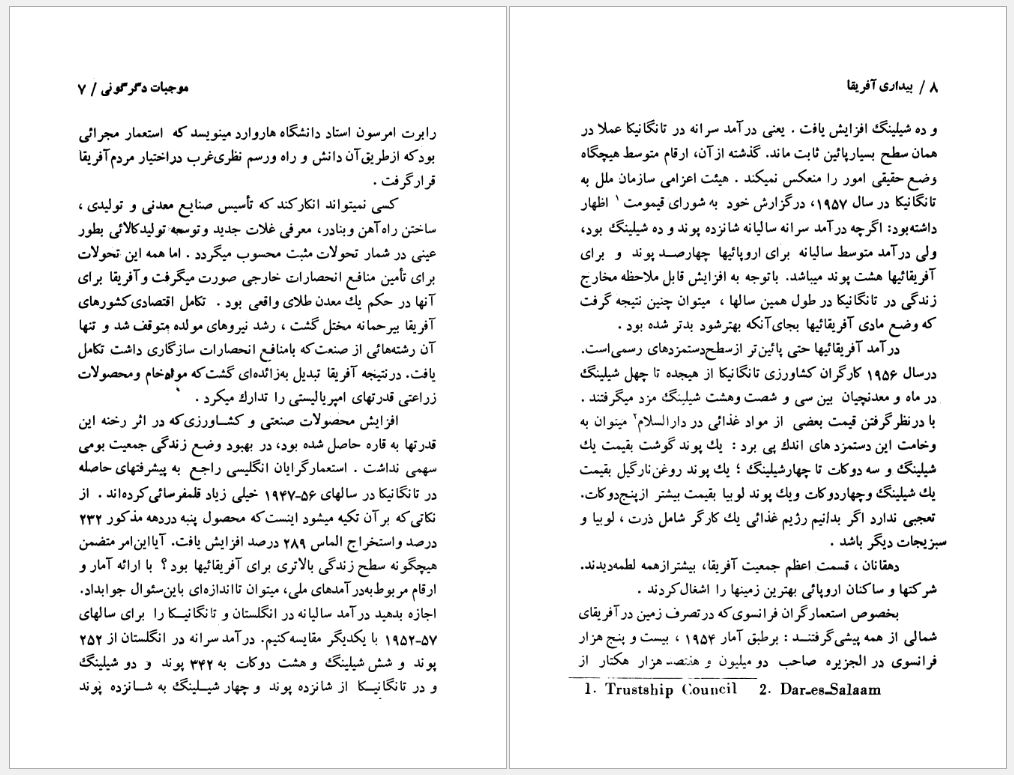 موجبات دگرگونی / ۷
رابرت امرسون استاد دانشگاه هاروارد مینویسد که استعمار مجرائی
بود که ازطریق آن دانش و راه ورسم نظری غرب دراختیار مردم آفریقا
قرارگرفت .
کسی نمیتواند انکارکند که تأسیس صنایع معدنی و تولیدی ،
ساختن راه آهن وبنادر، معرفی غلات جدید وتوسعه تولیدکالائی بطور
عینی در شمار تحولات مثبت محسوب میگردد . اما همه این تحولات
برای تأمین منافع انحصارات خارجی صورت میگرفت وآفریقا برای
آنها در حکم یك معدن طلای واقعی بود . تکامل اقتصادی کشورهای
آفریقا بیرحمانه مختل گشت ، رشد نیروهای مولده متوقف شد و تنها
آن رشته‌هائی از صنعت که بامنافع انحصارات سازگاری داشت تکامل
یافت. درنتیجه آفریقا تبدیل به‌زائده‌ای گشت که موادخام ومحصولات
زراعتی قدرتهای امپریالیستی را تدارك میکرد .
افزایش محصولات صنعتی و کشاورزی که در اثر رخنه این
قدرتها به قاره حاصل شده بود، در بهبود وضع زندگی جمعیت بومی
سهمی نداشت . استعمارگرایان انگلیسی راجع به پیشرفتهای حاصله
در تانگانیکا در سالهای ۵۶-۱۹۴۷ خیلی زیاد قلمفرسائی کرده‌اند . از
نکاتی که بر آن تکیه میشود اینست که محصول پنبه دردهه مذکور ۲۳۲
درصد واستخراج الماس ۲۸۹ درصد افزایش یافت. آیااین‌امر متضمن
هیچگونه سطح زندگی بالاتری برای آفریقائیها بود ؟ با ارائه آمار و
ارقام مربوط به‌در آمدهای ملی، میتوان تااندازه‌ای باین‌سئوال جوابداد.
اجازه بدهید درآمد سالیانه در انگلستان و تانگانیکا را برای سالهای
۵۷-۱۹۵۲ با یکدیگر مقایسه‌کنیم. درآمد سرانه در انگلستان از ۲۵۲
پوند و شش شیلینگ و هشت دوکات به ۳۴۲ پوند و دو شیلینگ
و در تانگانیکا از شانزده پوند و چهار شیلینگ به شانزده پوند
۸ / بیداری آفریقا
و ده شیلینگ افزایش یافت . یعنی درآمد سرانه در تانگانیکا عملا در
همان سطح بسیارپائین ثابت ماند. گذشته از آن، ارقام متوسط هیچگاه
وضع حقیقی امور را منعکس نمیکند . هیئت اعزامی سازمان ملل به
تانگانیکا در سال ۱۹۵۷، درگزارش خود به شورای قیمومت۱ اظهار
داشته‌بود: اگرچه درآمد سرانه سالیانه شانزده پوند و ده شیلینگ بود،
ولی درآمد متوسط سالیانه برای اروپائیها چهارصد پوند و برای
آفریقائیها هشت پوند میباشد. باتوجه به افزایش قابل ملاحظه مخارج
زندگی در تانگانیکا در طول همین سالها ، میتوان چنین نتیجه گرفت
که وضع مادی آفریقائیها بجای آنکه بهترشود بدتر شده بود .
درآمد آفریقائیها حتی پائین‌تر ازسطح‌دستمزدهای رسمی‌است.
درسال ۱۹۵۶ کارگران کشاورزی تانگانیکا از هیجده تا چهل شیلینگ
در ماه و معدنچیان بین سی و شصت وهشت شیلینگ مزد میگرفتند .
با درنظرگرفتن قیمت بعضی از مواد غذائی در دارالسلام۲ میتوان به
وخامت این دستمزدهای اندك پی برد : یك پوند گوشت بقیمت یك
شیلینگ و سه دوکات تا چهارشیلینگ ؛ یك پوند روغن‌نارگیل بقیمت
یك شیلینگ وچهاردوکات ویك پوند لوبیا بقیمت بیشتر ازپنج‌دوکات.
تعجبی ندارد اگر بدانیم رژیم غذائی یك کارگر شامل ذرت ، لوبیا و
سبزیجات دیگر باشد .
دهقانان ، قسمت اعظم جمعیت آفریقا، بیشترازهمه لطمه‌دیدند.
شرکتها و ساکنان اروپائی بهترین زمینها را اشغال‌کردند .
بخصوص استعمارگران فرانسوی که در تصرف زمین در آفریقای
شمالی از همه پیشی‌گرفتند : برطبق آمار ۱۹۵۴ ، بیست و پنج هزار
فرانسوی در الجزیره صاحب دو میلیون و هفتصد هزار هکتار از
1. Trustship Council 2. Dar-es-Salaam